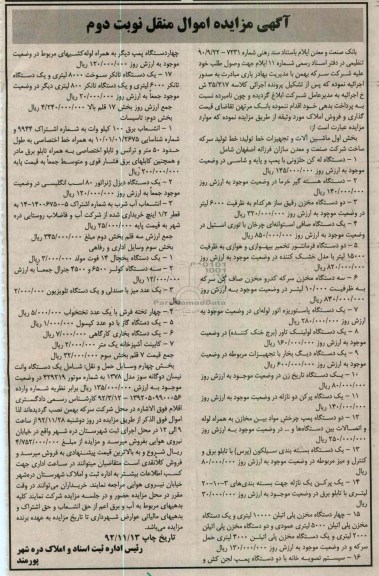 آگهی مزایده اموال منقل نوبت دوم
بانک صنعت و معدن ایلام باستناد سند رهنی شماره ۷۷۳۱ – ۹۰/۹/۲۲
تنظیمی در دفتر اسناد رسمی شماره ۱۱ ایلام جهت وصول طلب خود
علیه شرکت سرکه بهمن با مدیریت بهادر یاری مبادرت به صدور
اجرائیه نموده که پس از تشکیل پرونده اجرائی کلاسه
ع اجرائیه به مدیرعامل شرکت ابلاغ گردیده و چون نامبرده نسبت
به پرداخت بدهی خود اقدام ننموده بانک مرتهن تقاضای قیمت
گذاری و فروش املاک مورد وثیقه از طریق مزایده نموده که موارد
مزایده عبارت است از:
بخش اول ماشین آلات و تجهیزات خط تولید خط تولید سرکه
ساخت شرکت صنعت و معدن سازان فرزانه اصفهان شامل
۱ – دستگاه له کن حلزونی با پمپ و پایه و شاسی در وضعیت
موجود به ارزش روز ۱۳۵/۰۰۰/۰۰۰ ریال
۲ – دستگاه هسته گیر خرما در وضعیت موجود به ارزش روز
۱۴۰/۰۰۰/۰۰۰ ریال
۳ – دو دستگاه مخزن رقیق ساز هرکدام به ظرفیت ۶۰۰۰ لیتر
در وضعیت موجود به ارزش روز ۳۲۰/۰۰۰/۰۰۰ ریال
۴ – یک دستگاه صافی استوانه‌ای چرخان با توری استیل در
وضعیت موجود به ارزش روز ۸۵۰/۰۰۰/۰۰۰ ریال
۵ – دو دستگاه فرمانتور تخمیر بیهوازی و هوازی به ظرفیت
۱۵۰۰ لیتر با مدل خشک کننده در وضعیت موجود به ارزش روز
ریال
۶ – سه دستگاه مخزن سرکه کدرو مخزن صاف کن سرکه
به ظرفیت ۱۰۰۰۰ لیتر در وضعیت موجود به ارزش روز
۸۴۰/۰۰۰/۰۰۰ ریال
۷ – یک دستگاه پاستوریزه اتور لوله‌ای در وضعیت موجود به
ارزش روز ۲۸۰/۰۰۰/۰۰۰ ریال
۸ – یک دستگاه کولینگ تاور (برج خنک کننده) در وضعیت
موجود به ارزش روز ۱۶۰/۰۰۰/۰۰۰ ریال
۹ – یک دستگاه دیگ بخار با تجهیزات مربوطه در وضعیت
موجود به ارزش روز ۶۰۰/۰۰۰/۰۰۰ ریال
۱۰ – یک دستگاه تاریخ زن در وضعیت موجود به ارزش روز
۸۰/۰۰۰/۰۰۰ ریال
۱۱ – یک دستگاه پرکن دو نازله در وضعیت موجود به ارزش روز
۱۴۰/۰۰۰/۰۰۰ ریال
۱۲ – دو دستگاه پمپ چرخش مواد بین مخازن به همراه لوله
و اتصالات بین دستگاهها و ... در وضعیت موجود به ارزش روز
۲۵۰/۰۰۰/۰۰۰ ریال
۱۳ – یک دستگاه بسته بندی سیلکون (پرس) با تابلو برق و
کنترل و میز مربوطه در وضعیت موجود به ارزش روز ۸۰/۰۰۰/۰۰۰
ریال
۱۴ – یک پرکن یک نازله جهت بسته بندی‌های ۳–۱۰–۲۰
لیتری با تابلو برق در وضعیت موجود به ارزش روز ۳۰/۰۰۰/۰۰۰
ریال
۱۵ – چهار دستگاه مخزن پلی اتیلن ۱۰۰۰۰ لیتری و یک دستگاه
مخزن پلی اتیلن ۵۰۰۰ لیتری عمودی و دو دستگاه مخزن پلی اتیلن
۲۰۰۰ لیتری و یک دستگاه مخزن پلی اتیلن ۴۰۰۰ لیتری حمل
سرکه و در وضعیت موجود به ارزش روز ۱۳۰/۰۰۰/۰۰۰ ریال
۱۶ – سیستم تصویه خانه با دو دستگاه پمپ لجن کش و
چهار دستگاه پمپ دیگر به همراه لوله کشیهای مربوط در وضعیت
موجود به ارزش روز ۱۲۰/۰۰۰/۰۰۰ ریال
۱۷ – یک دستگاه تانکر سوخت ۸۰۰۰ لیتری و یک دستگاه
تانکر ۶۰۰۰ لیتری و یک دستگاه تانکر ۸۰۰ لیتری دیگر در وضعیت
موجود جمعاً به ارزش روز ۲۰/۰۰۰/۰۰۰ ریال
جمع ارزش روز بخش ۱۷ قلم بالا ۴/۲۴۰/۰۰۰/۰۰۰ ریال
بخش دوم: تاسیسات
۱ – انشعاب برق ۱۰۰ کیلو وات به شماره اشتراک ۹۹۳۴ و
شناسائی به همراه خط اختصاصی به طول
حدود ۵۰ متر و ترانس و تابلو اختصاصی به همراه تابلو برق مادر
و همچنین کابلهای برق فشار قوی و متوسط جمعاً به قیمت پایه
۲۰۰/۰۰۰/۰۰۰ ریال
۲ – یک دستگاه دیزل ژنراتور ۸۰ اسب انگلیسی در وضعیت
موجود جمعاً به ارزش روز ۱۲۰/۰۰۰/۰۰۰ ریال
۳ – انشعاب آب شرب به شماره اشتراک
قطر ۱/۲ اینچ خریداری شده از شرکت آب و فاضلاب روستایی دره
شهر به قیمت پایه ۲۵/۰۰۰/۰۰۰ ریال
جمع ارزش سه قلم بخش دوم مبلغ ۳۴۵/۰۰۰/۰۰۰ ریال
بخش سوم وسایل اداری و رفاهی
۱ – یک دستگاه یخچال ۱۴ فوت مولد ۳/۰۰۰/۰۰۰ ریال
۲ – سه دستگاه کولر ۶۵۰۰ و ۴۵۰۰ جنرال جمعاً به ارزش
۱۲/۰۰۰/۰۰۰ ریال
۳ – یک عدد میز با صندلی و یک دستگاه تلویزیون ۲/۰۰۰/۰۰۰
ریال
۴ – چهار تخته فرش با یک عدد تختخواب ۵/۰۰۰/۰۰۰ ریال
۵ – یک دستگاه گاز با دو عدد کپسول ۱/۰۰۰/۰۰۰ ریال
۶ – یک دستگاه بخاری کارگاهی ۷/۰۰۰/۰۰۰ ریال
۷ – کابینت آشپزخانه یک متر ۲/۰۰۰/۰۰۰ ریال
جمع قیمت ۷ قلم بخش سوم ۳۲/۰۰۰/۰۰۰ ریال
بخش چهارم وسایل حمل و نقل: شامل یک دستگاه وانت
نیسان دوگانه سوز مدل ۱۳۷۸ به شماره موتور ۴۳۹۲۱۹ در وضعیت
موجود به ارزش ۱۳۵/۰۰۰/۰۰۰ ریال برابر نظریه شماره وارده
۱۳۹۲۰۵۰۹۹۰۰۰۵۴ – ۹۲/۳/۱۲ کارشناس رسمی دادگستری
اقلام فوق الاشاره در محل شرکت سرکه بهمن نصب گردیده‌اند لذا
اموال فوق الذکر از طریق مزایده در روز دوشنبه ۹۲/۱۱/۲۸ از ساعت
۹ الی ۱۲ در محل اجرای ثبت شهرستان دره شهر واقع در خیابان
نیروی هوایی بفروش میرسد و مزایده از مبلغ ۴/۷۵۲/۰۰۰/۰۰۰
ریال شروع و به بالاترین قیمت پیشنهادی به فروش میرسد و
فروش کلانقدی است متقاضیان میتوانند در ساعت اداری جهت
کسب اطلاعات بیشتر به اداره ثبت و املاک شهرستان دره‌شهر
خیابان نیروی هوایی مراجعه نمایند. خریداران می‌توانند در وقت
مقرر در محل مزایده حضور و در جلسه مزایده شرکت نمایند کلیه
بدهیهای مربوط به آب و برق اعم از حق انشعاب و حق اشتراک و
بدهیهای مالیاتی عوارض شهرداری تا تاریخ مزایده به عهده برنده
مزایده می‌باشد.
تاریخ چاپ ۹۲/۱۱/۱۳
رئیس اداره ثبت اسناد و املاک دره شهر
پورمند